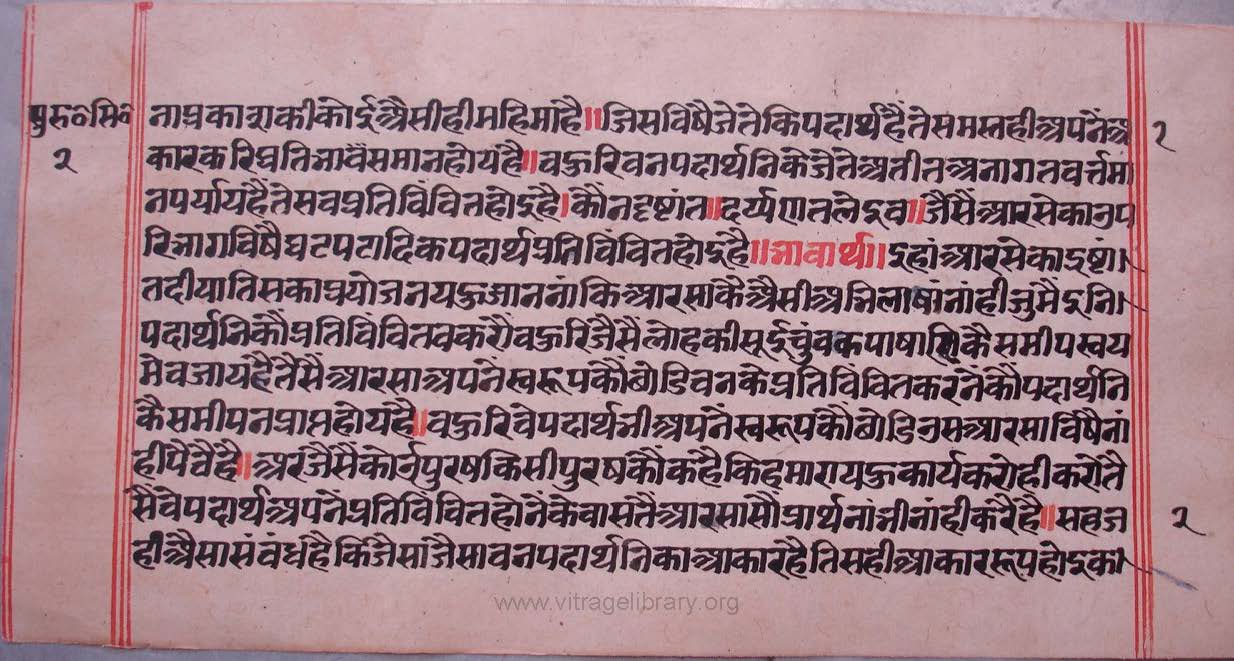 पुरु०सि०
२
नाप्रकाशकीकोईअैसीहीमहिमांहै॥जिसविषैजेतेकिपदार्थहैंतेसमस्तहीअपनैंआ
२
कारकरिप्रतिभावैसमानहोयहै॥वहुरिवनपदार्थनिकेजेतेअतीतअनागतवर्त्तमां
नपर्यायहैंतेसवप्रतिविंवितहोइहै।कौंनदृष्टांत॥दर्प्पणतलेइव॥जैसैंआरसेकाउप
रिभागविषैघटपटादिकपदार्थप्रतिविंवितहोइहै॥भावार्थ॥इहांआरसेकादृष्टां
तदीयातिसकाप्रयोजनयहुजाननांकिआरसाकैअैसीअभिलाषांनांहीजुमैइनि
पदार्थनिकौंप्रतिविंवितवकरौंवहुरिजैसैंलोहकीसूईचुंवकपाषाणिकैसमीपस्वय
मेवजायहैतैसैंआरसाअपनैंस्वरूपकौंछोडिवनकेप्रतिविंवितकरनैंकौंपदार्थनि
कैसमीपनप्राप्तहोयहै॥वहुरिवेपदार्थभीअपनैंस्वरूपकौंछोडिउसआरसाविंषैनां
हींपैंचैहै॥अरजैसैंकोईपुरषकिसीपुरषकौंकहैकिहमारायहुकार्यकरोहीकरोतै
सैंवेपदार्थअपनैंप्रतिविंवितहोनेंकेवासतैंआरसासौंप्रार्थनांभीनांहीकरैहै॥सहज
२
हीअैसासंवंधहैकिजैसांजैसावनपदार्थनिकाआकारहैतिसहीआकाररूपहोइका
www.vitragelibrary.org